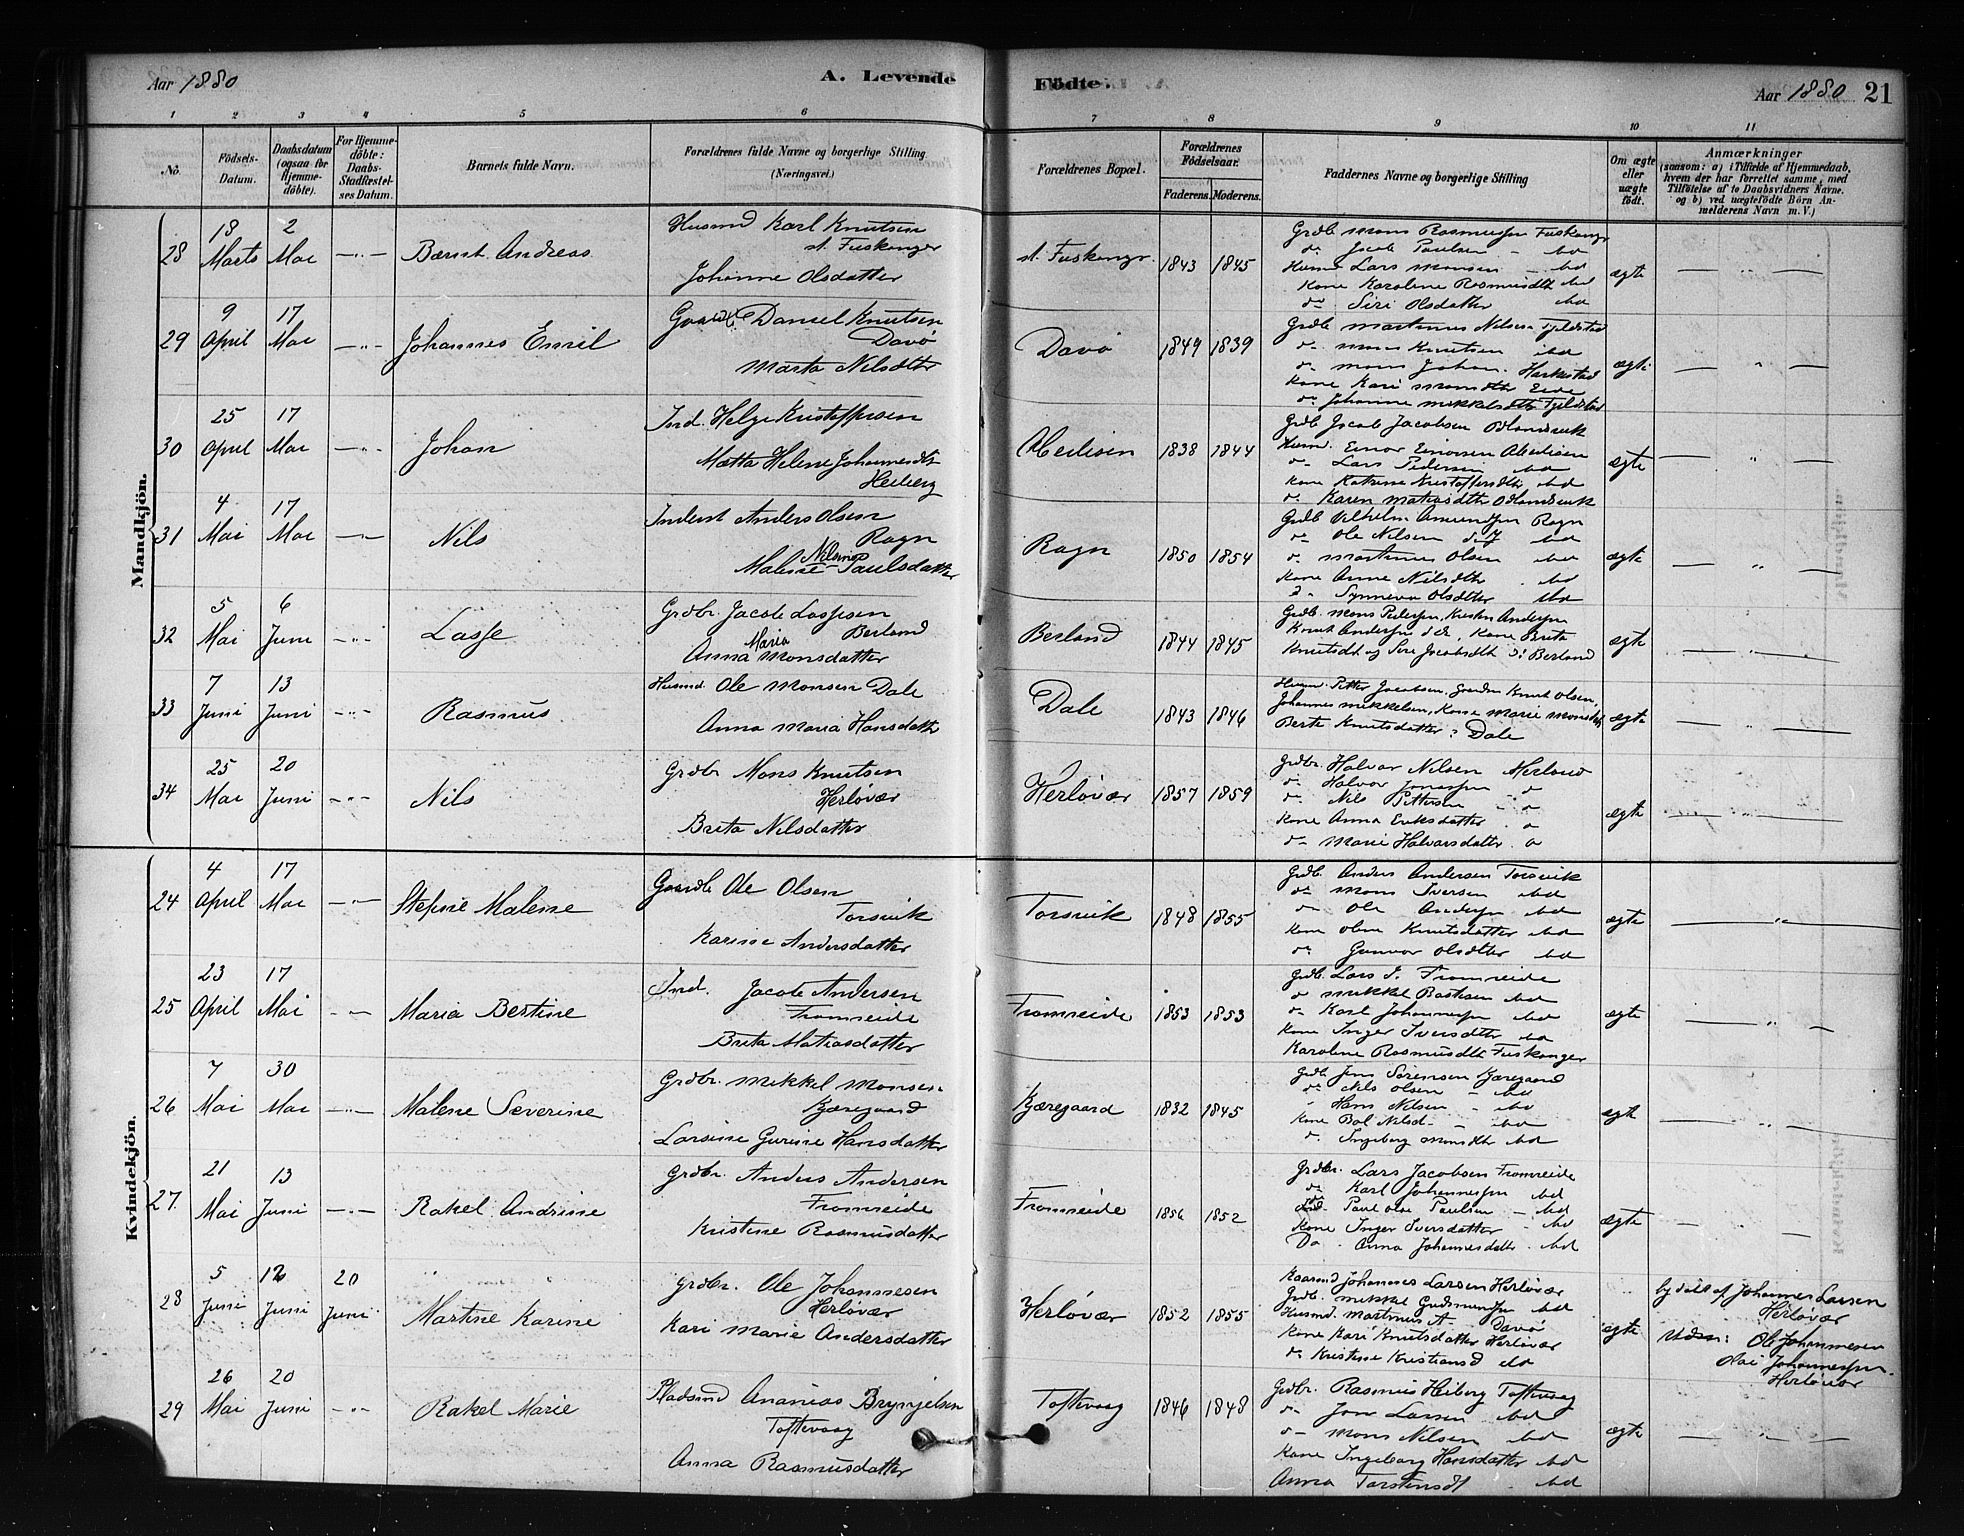 Aar 1880
A. Levende
Födte.
Aar 1880
21
1 2 3 4 5 6 7 8 9 10 11
No.
Födsels-Datum.
Daabsdatum (ogsaa for Hjemme-döbte).
For Hjemme-döbte: Daabs-Stadfæstel-ses Datum.
Barnets fulde Navn.
Forældrenes fulde Navne og borgerlige Stilling (Næringsvei.)
Forældrenes Bopæl.
Forældrenes Födselsaar.
Faderens. Moderens.
Faddernes Navne og borgerlige Stilling
Om ægte eller uægte födt.
Anmærkninger
(saasom: a) i Tilfælde af Hjemmedaab, hvem der har forrettet samme, med Tilföielse af to Daabsvidners Navne, og b) ved uægtefödte Börn An-melderens Navn m. V.)
Mandkjön.
28
18 Marts
2 Mai
Bærnt Andreas
Husmd Karl Knutsen
st. Fuskanger
Johanne Olsdatter
st. Fuskangr.
1843 1845
Grdb Mons Rasmussen Fuskangr
do Jacob Paulsen - ibd
Husm Lars Monsen - ibd
Kone Karolene Rasmusdtr ibd
do Siri Olsdatter ibd
ægte
29
9 April
17 Mai
Johannes Emil
Gaardb Daniel Knutsen
Davø
Marta Nilsdtr
Davø
1849 1839
Grdb Martinus Nilsen Fjeldstad
do Mons Knutsen ibd
do Mons Johan. Herkestad
Kone Kari Monsdtr Eide
do Johanne Mikkelsdtr Fjeldstad
ægte
30
25 April
17 Mai
Johan
Ind. Helge Kristoffersen
Mætta Helene Johannesdtr
Heiberg
1838 1844
Grdb Jacob Jacobsen
Husm. Einar Einarsen
do Lars Pedersen ibd
Kone Katrine Kristoffersdtr ibd
do Karen Matiasdtr
ægte
31
4 Mai
17 Mai
Nils
Inderst Anders Olsen
Ragn
Malene Nilsine Paulsdatter
Ragn
1850 1854
Grdb Vilhelm Amundsen Ragn
do Ole Nilsen d.y. ibd
do Martinus Olsen ibd
Kone Anne Nilsdtr ibd
do Synneva Olsdtter ibd
ægte
32
5 Mai
6 Juni
Lasse
Grdbr. Jacob Lassesen
Berland
Anna Maria Monsdatter
Berland
1844 1845
Grdb. Mons Pedersen, Kristen Andersen
Knut Andersen d.e., Kone Brita
Knutsdt og Siri Jacobsdtr : Berland
ægte
33
7 Juni
13 Juni
Rasmus
Husmd. Ole Monsen Dale
Anna Maria Hansdatter
Dale
1843 1846
Husm. Petter Jacobsen, Knut Olsen,
Johannes Mikkelsen, Kone Marie Monsdtr,
Berte Knutsdatter : Dale
ægte
34
25 Mai
20 Juni
Nils
Grdbr Mons Knutsen
Herløvær
Brita Nilsdatter
Herløvær
1857 1859
Grdbr. Halvar Nilsen Herløvær
do Halvor Jonassen
do Nils Pettersen
Kone Anna Eriksdatter
do Marie Halvarsdatter
ægte
Kvindekjön.
24
4 April
17 Mai
Stefine Malene
Gaardb Ole Olsen
Torsvik
Karine Andersdatter
Torsvik
1848 1855
Grdb Anders Andersen Torsvik
do Mons Iversen ibd
do Ole Andersen ibd
Kone Oline Knutsdatter ibd
do Gunvor Olsdtter ibd
ægte
25
23 April
17 Mai
Maria Bertine
Ind. Jacob Andersen
Fromreide
Brita Matiasdatter
Fromreide
1853 1853
Grdb. Lars J. Fromreide
do Mikkel Bastesen ibd
do Karl Johannessen ibd
Kone Inger Iversdtter ibd
Karolene Rasmusdtr Fuskanger
ægte
26
7 Mai
30 Mai
Malene Severine
Grdbr. Mikkel Monsen
Kjæregaard
Larsine Gurine Hansdatter
Kjæregaard
1832 1845
Grdb Jens Sørensen Kjæregaard
do Nils Olsen - ibd
Hans Nilsen - ibd
Kone Bol Nilsd - ibd
do Ingeborg Monsdtr ibd
ægte
27.
21 Mai
13 Juni
Rakel Andrine
Grdbr. Anders Andersen
Fromreide
Kristine Rasmusdatter
Fromreide
1856 1852
Grdbr. Lars Jacobsen Fromreide
do Karl Johannessen ibd
Ind. Paul Olai Paulsen - ibd
Kone Inger Iversdatter - ibd
Do. Anna Johannesdatter ibd
ægte
28
5 Juni
12 Juni
20 Juni
Martine Karine
Grdbr. Ole Johannesen
Herløvær
Kari Marie Andersdatter
Herløvær
1852 1855
Kaarmd Johannes Larsen Herløvær
Grdb. Mikkel Gudmundsen ibd
Husmd. Martinus A. Davø
Kone Kari Knutsdatter Herløvær
do Kristine Kristiansd ibd
ægte
hj. døbt af Johannes Larsen
Herløvær
Vidner: Ole Johannesen
Olai Johannessen.
Herløvær
29
26 Mai
20 Juni
Rakel Marie
Pladsmd Ananias Brynjelsen
Toftevaag
Anna Rasmusdatter
Toftevaag
1846 1848
Grdbr. Rasmus Heiberg Toftevaag
do Jon Larsen ibd
do Mons Nilsen ibd
Kone Ingeborg Hansdatter ibd
Anna Torstensdt ibd
ægte